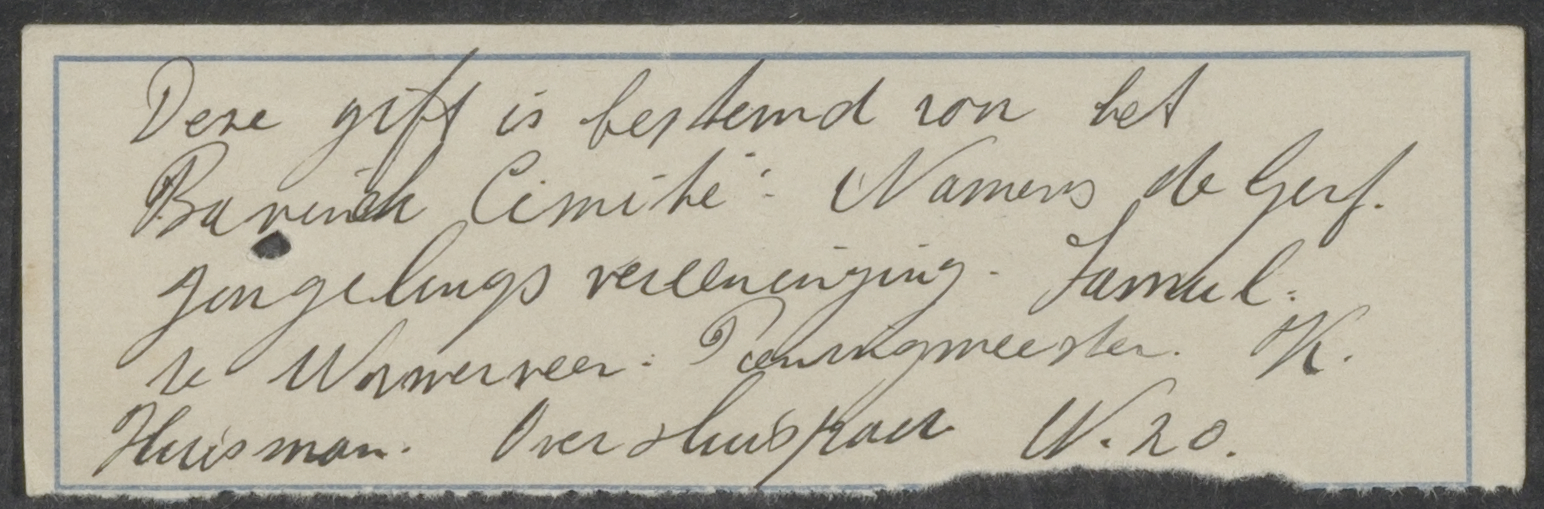 Deze gift is bestemd von het
Bavinck Comité. Namens de Geref.
Jongelings vereeniging. Samuel.
te Wormerveer. Penningmeester. K.
Huisman. Over N. 20.